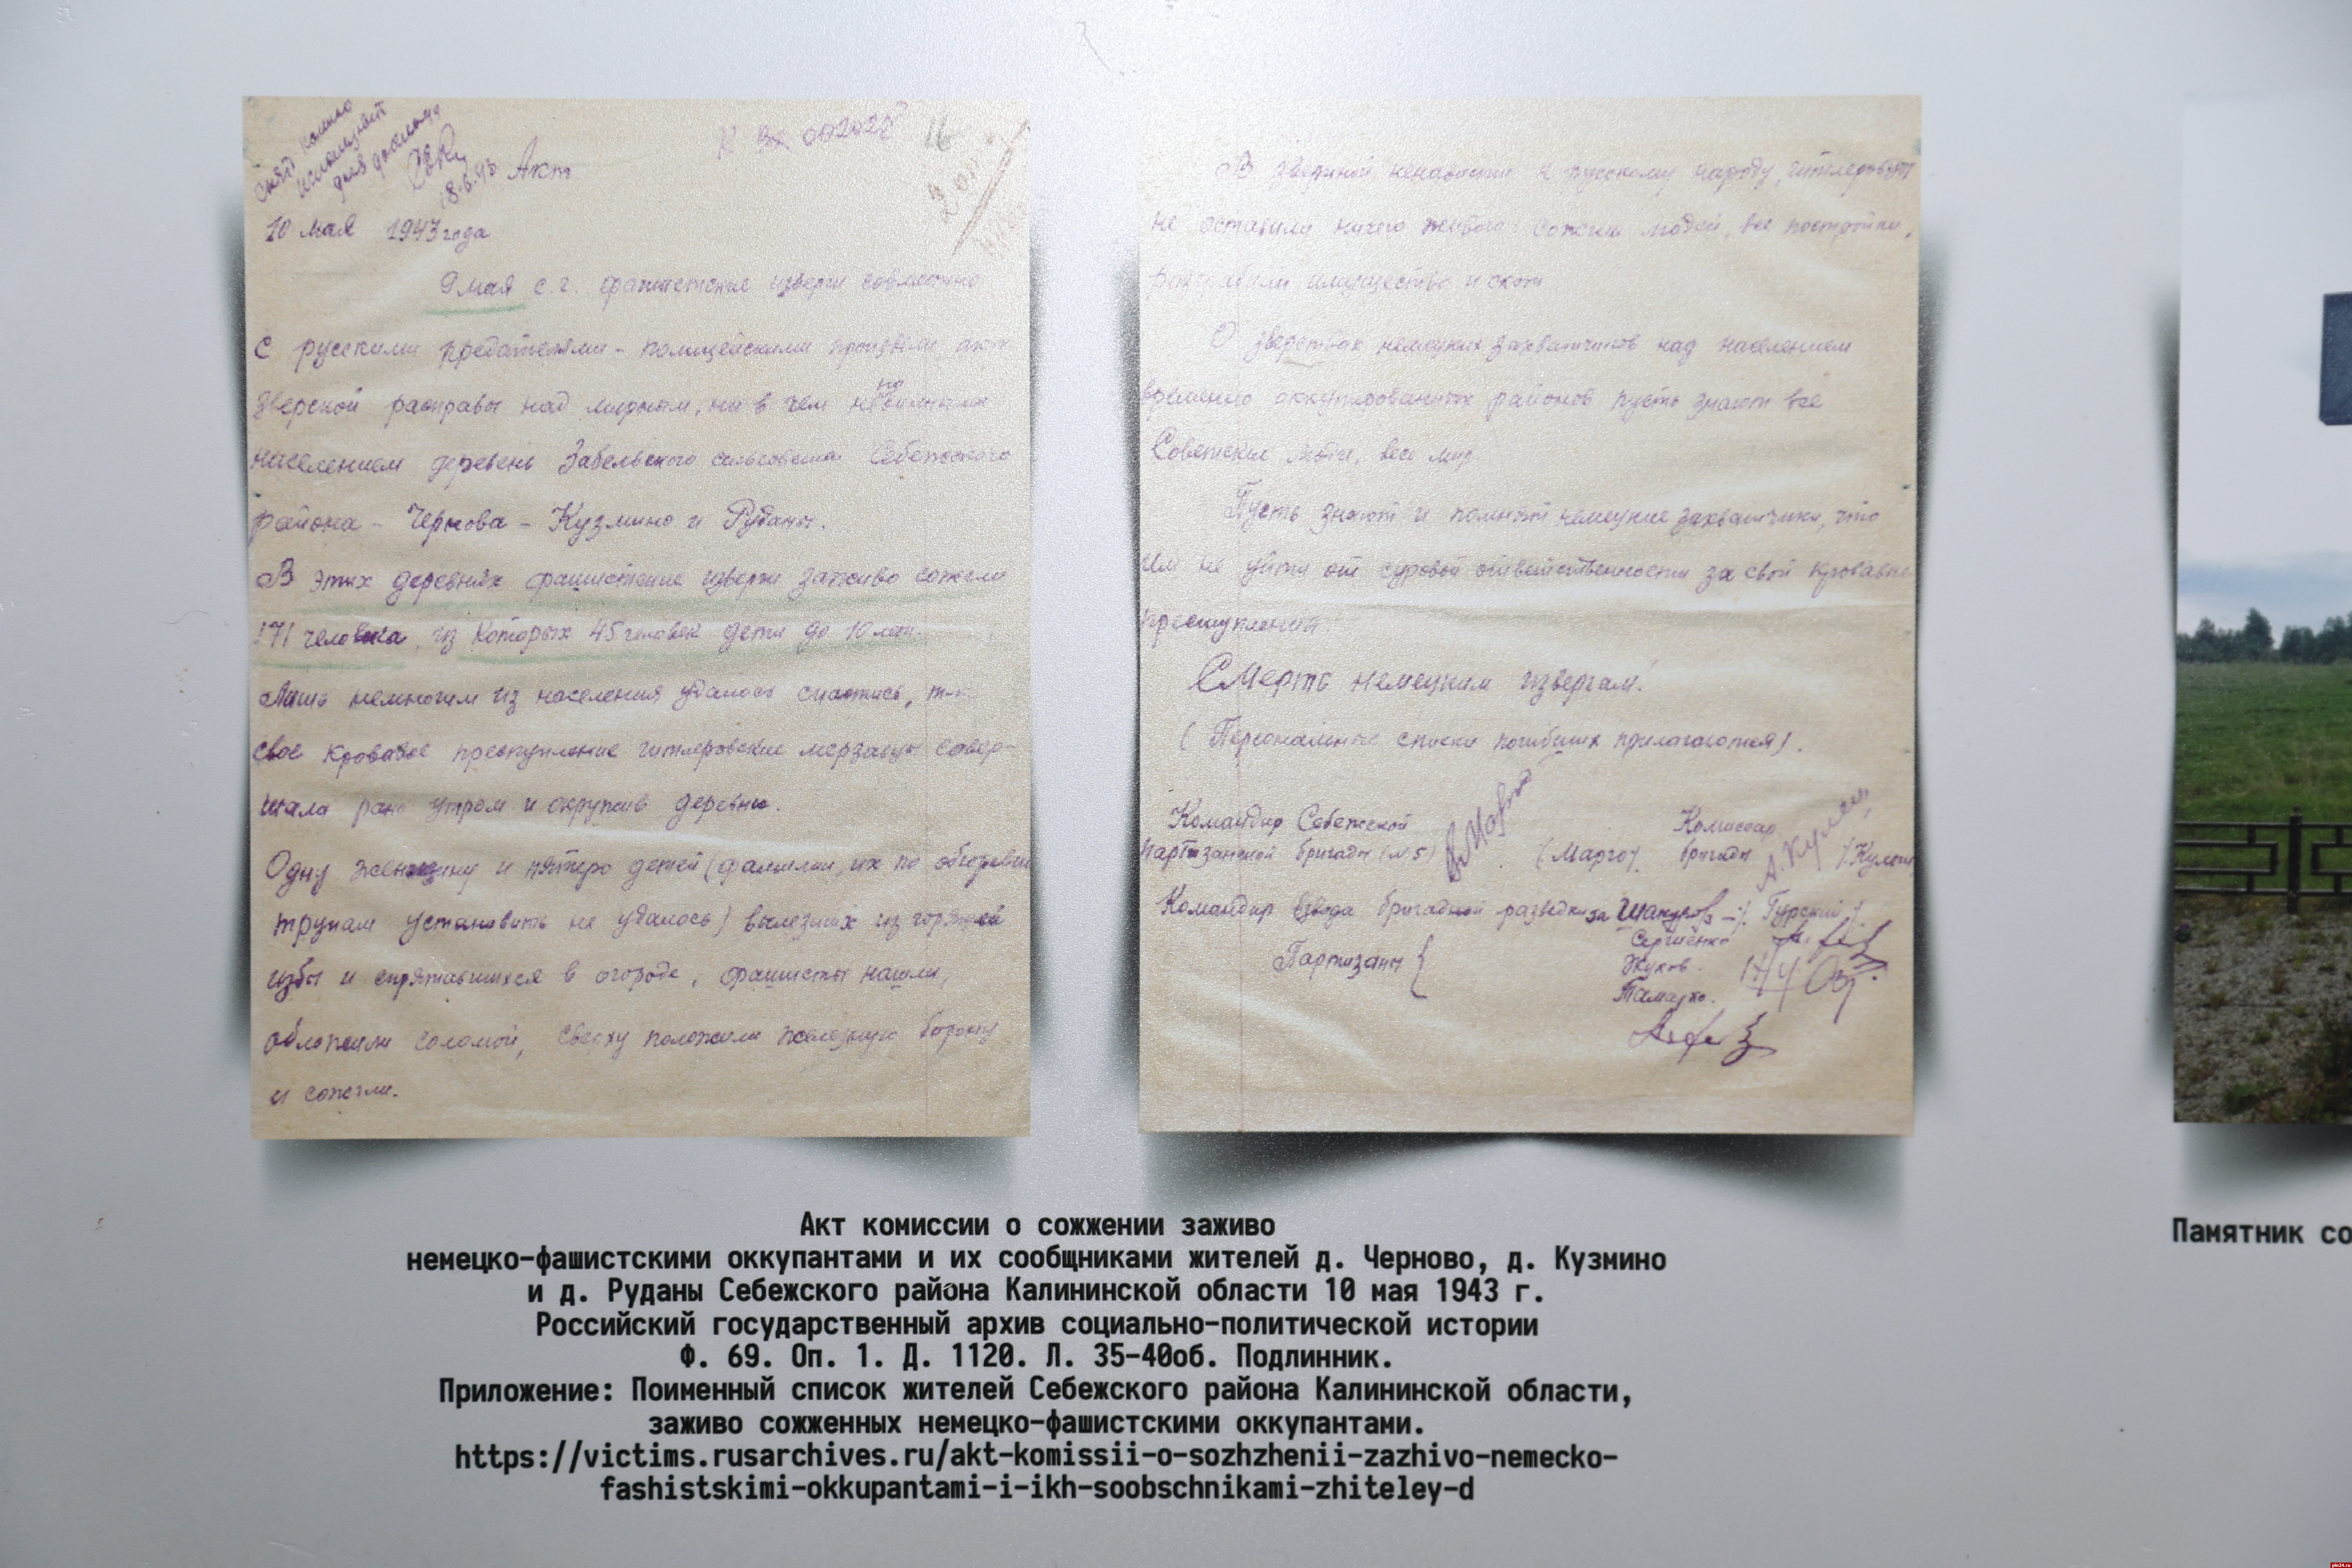 снять копию
использовать
для доклада
18.6.43
Акт
10 мая 1943 года
9 мая с.г. фашистские изверги совместно
с русскими предателями - полицейскими произвели акт
зверской расправы над мирным, ни в чем неповинным
населением деревень Забельского сельсовета Себежского
района - Чернова - Кузмино и Руданы.
В этих деревнях фашистские изверги заживо сожгли
171 человека, из которых 45 человек дети до 10 лет.
Лишь немногим из населения удалось спастись, т-к
свое кровавое преступление гитлеровские мерзавцы совер-
шали рано утром и окружив деревни.
Одну женщину и пятеро детей (фамилии, их по обгоревшим
трупам установить не удалось) вылезших из горящей
избы и спрятавшихся в огороде, фашисты нашли,
обложили соломой, сверху положили железную борону
и сожгли.
В звериной ненависти к русскому народу, гитлеровцы
не оставили ничего живого: сожгли людей, все постройки,
разграбили имущество и скот.
О зверствах немецких захватчиков над населением
временно оккупированных районов пусть знают все
Советские люди, весь мир.
Пусть знают и помнят немецкие захватчики, что
им не уйти от суровой ответственности за свои кровавые
преступления
Смерть немецким извергам!
(Персональные списки погибших прилагаются).
Командир Себежской
партизанской бригады (№5) (Марго). Комиссар бригады (Кулеш
Командир взвода бригадной разведки за Шакуров /Гурский/.
Партизаны { Сергиенко
Жуков.
Тамарко.
Акт комиссии о сожжении заживо
немецко-фашистскими оккупантами и их сообщниками жителей д. Черново, д. Кузмино
и д. Руданы Себежского района Калининской области 10 мая 1943 г.
Российский государственный архив социально-политической истории
Ф. 69. Оп. 1. Д. 1120. Л. 35-40об. Подлинник.
Приложение: Поименный список жителей Себежского района Калининской области,
заживо сожженных немецко-фашистскими оккупантами.
https://victims.rusarchives.ru/akt-komissii-o-sozhzhenii-zazhivo-nemecko-
fashistskimi-okkupantami-i-ikh-soobschnikami-zhiteley-d
Памятник со